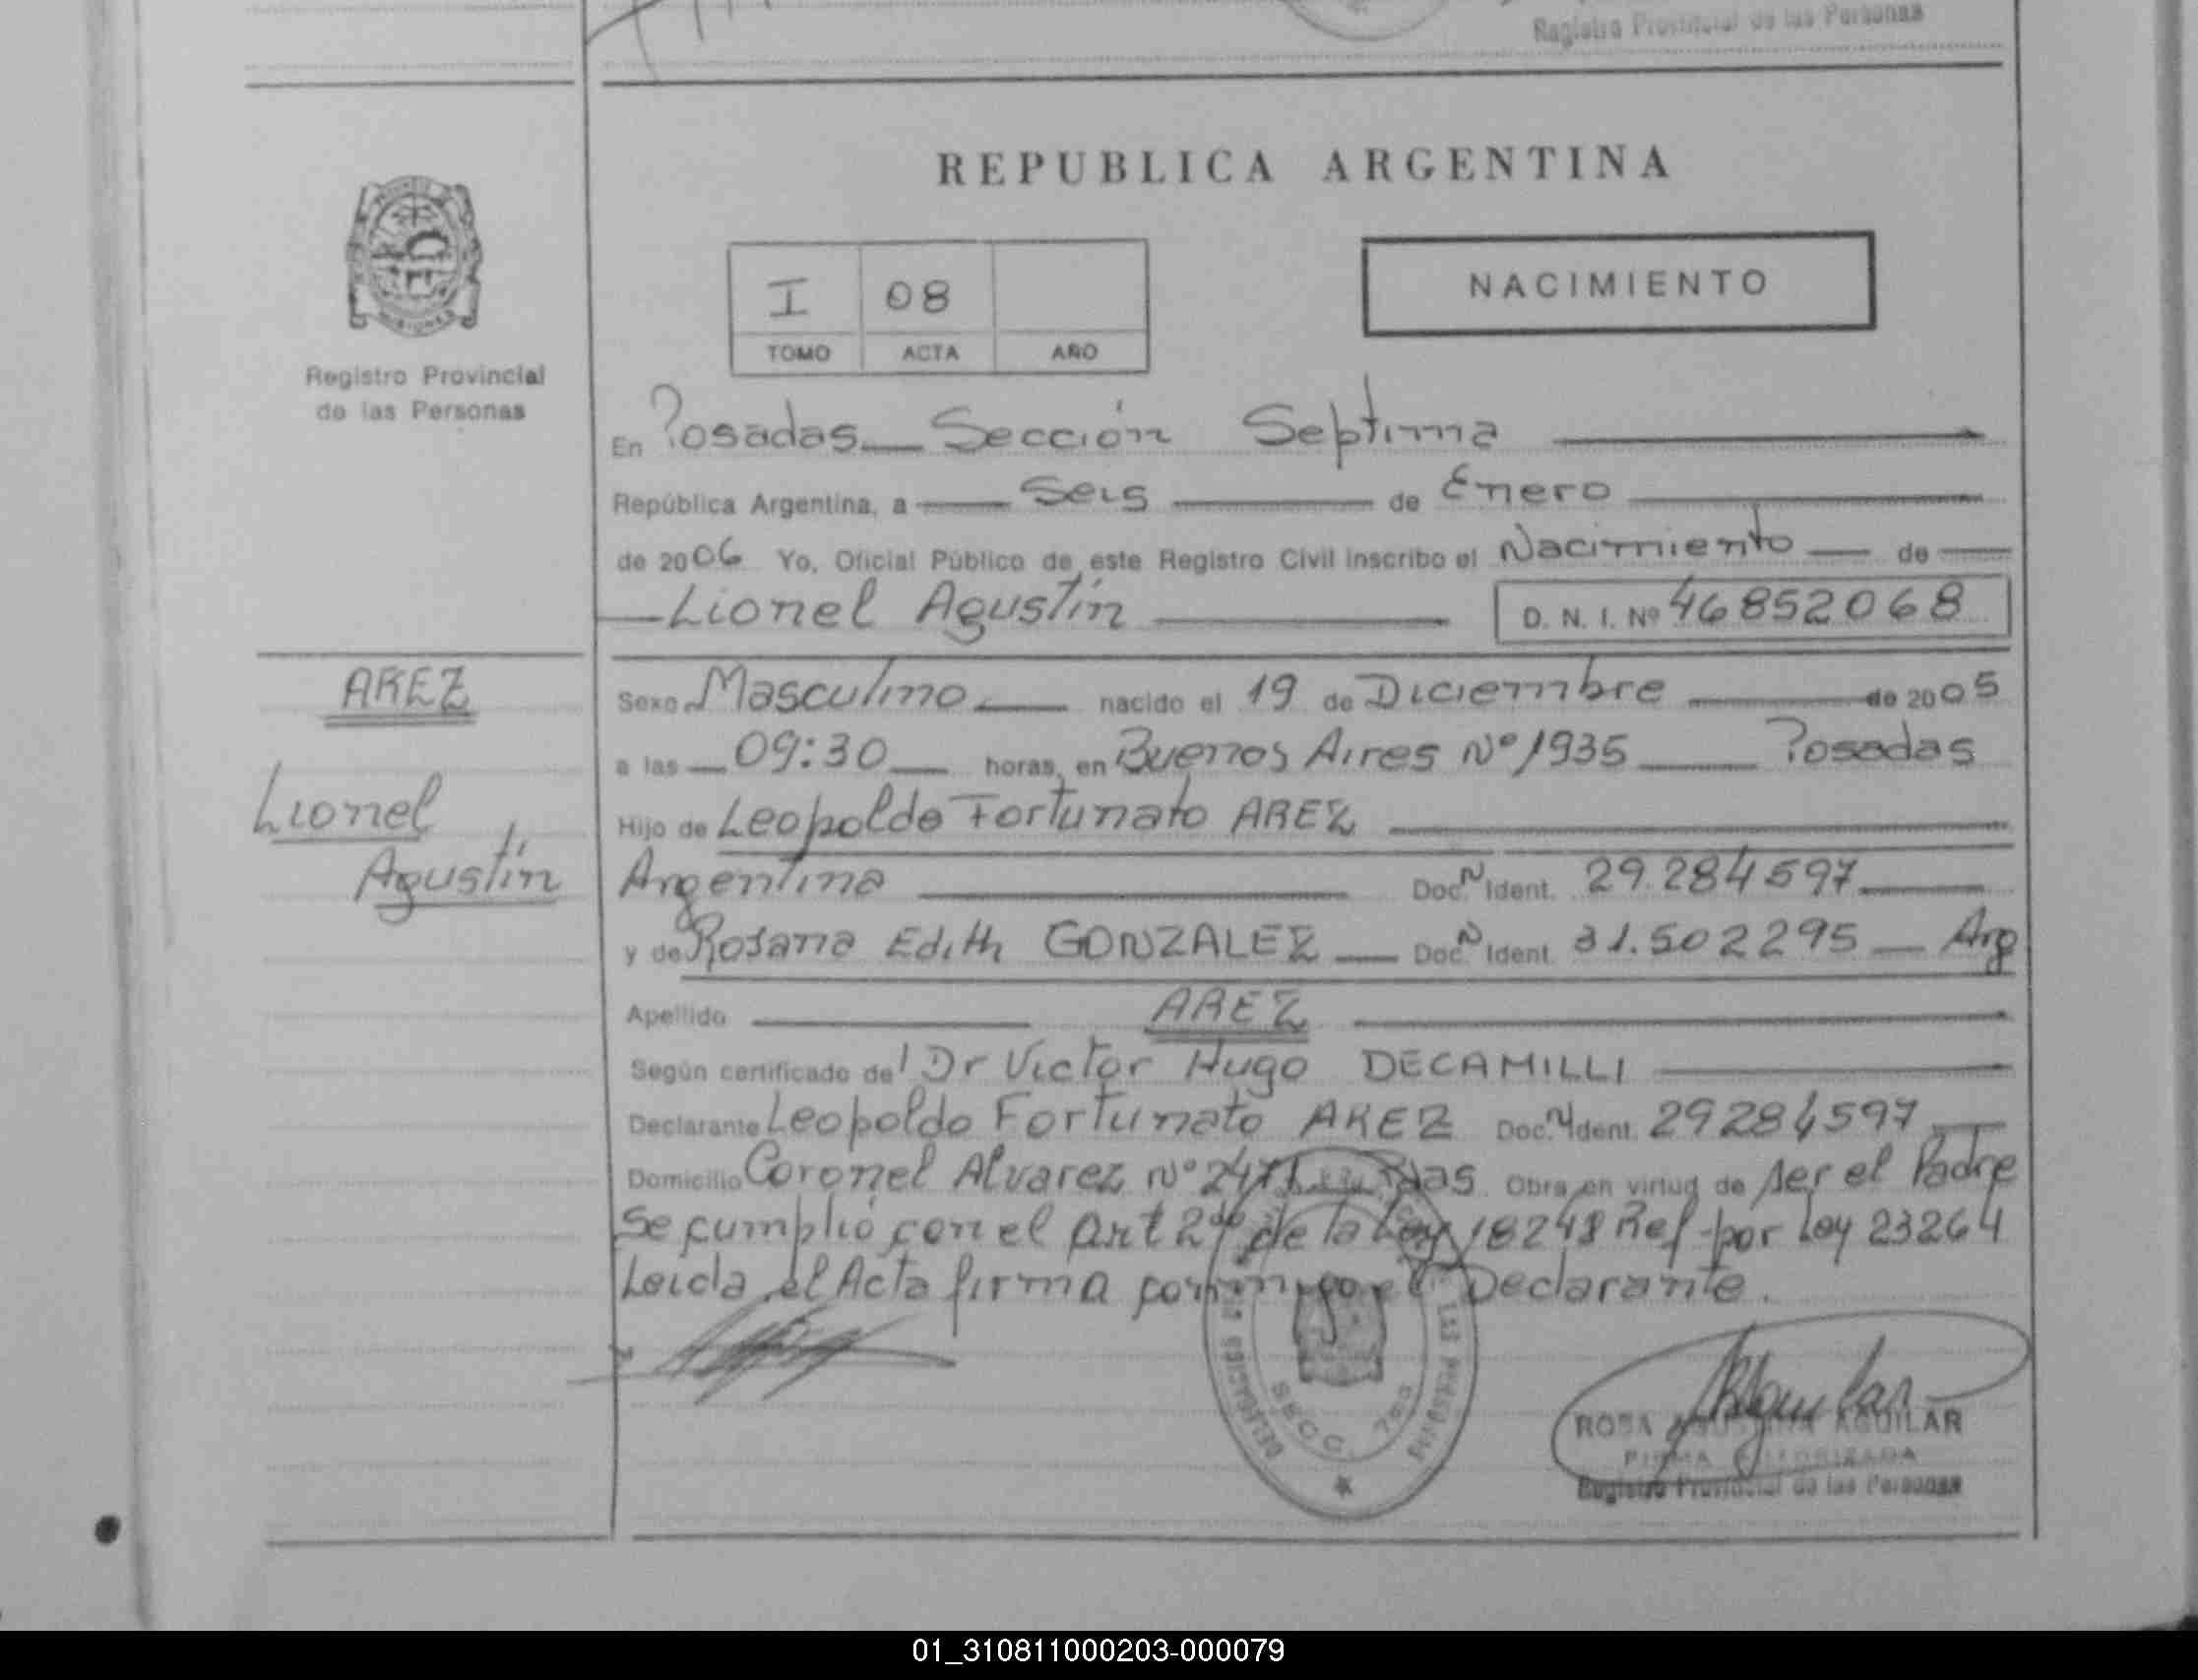 Registro Provincial de las Personas
REPUBLICA ARGENTINA
MISIONES
Registro Provincial
de las Personas
I 08
TOMO ACTA AÑO
NACIMIENTO
En Posadas Sección Septima
República Argentina, a Seis de Enero
de 2006 Yo, Oficial Público de este Registro Civil inscribo el Nacimiento de
Lionel Agustín D. N. I. Nº 46852068
AREZ
Lionel
Agustín
Sexo Masculino nacido el 19 de Diciembre de 2005
a las 09:30 horas, en Buenos Aires Nº 1935 Posadas
Hijo de Leopoldo Fortunato AREZ
Argentina Doc. N Ident. 29.284597
y de Rosana Edith GONZALEZ Doc. N Ident. 31.502295 Arg
Apellido AREZ
Según certificado del Dr Victor Hugo DECAMILLI
Declarante Leopoldo Fortunato AREZ Doc. N Ident. 29284597
Domicilio Coronel Alvarez Nº Obra en virtud de ser el Padre
Se cumplió con el Art 2do de la Ley 18248 Ref por Ley 23264
Leida el Acta firma conmigo el Declarante.
DELEGACION LAS PERSONAS
SECC. 7ma
ROSA AGUILAR
FIRMA AUTORIZADA
Registro Provincial de las Personas
01_310811000203-000079